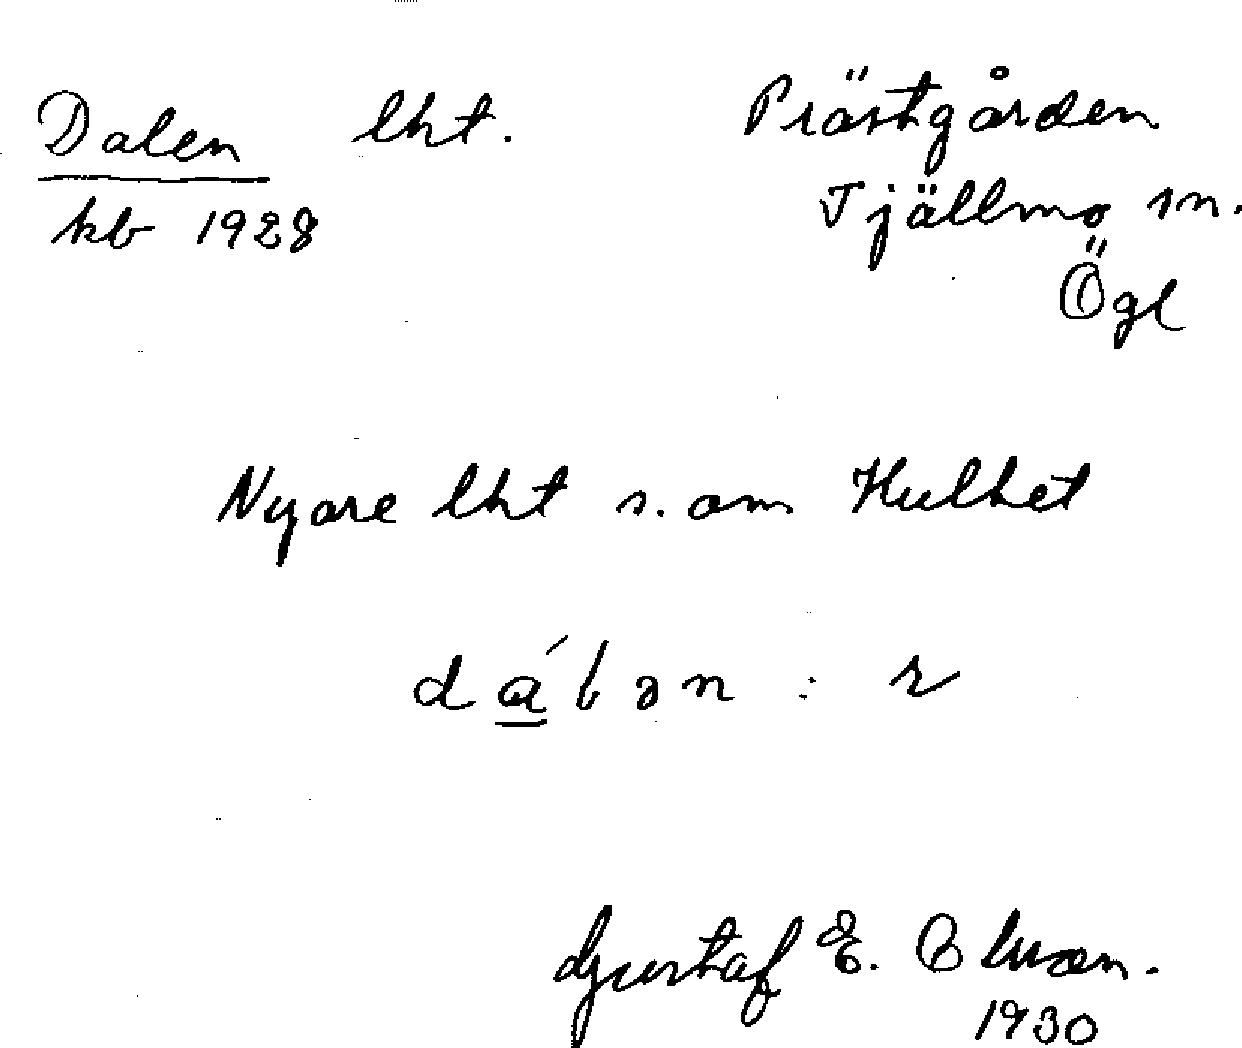 Dalen lht. Prästgården
kb 1928 Tjällmo sn.
Ögl
Nyare lht s. om Hulhet
dálən : r
Gustaf E.
1930